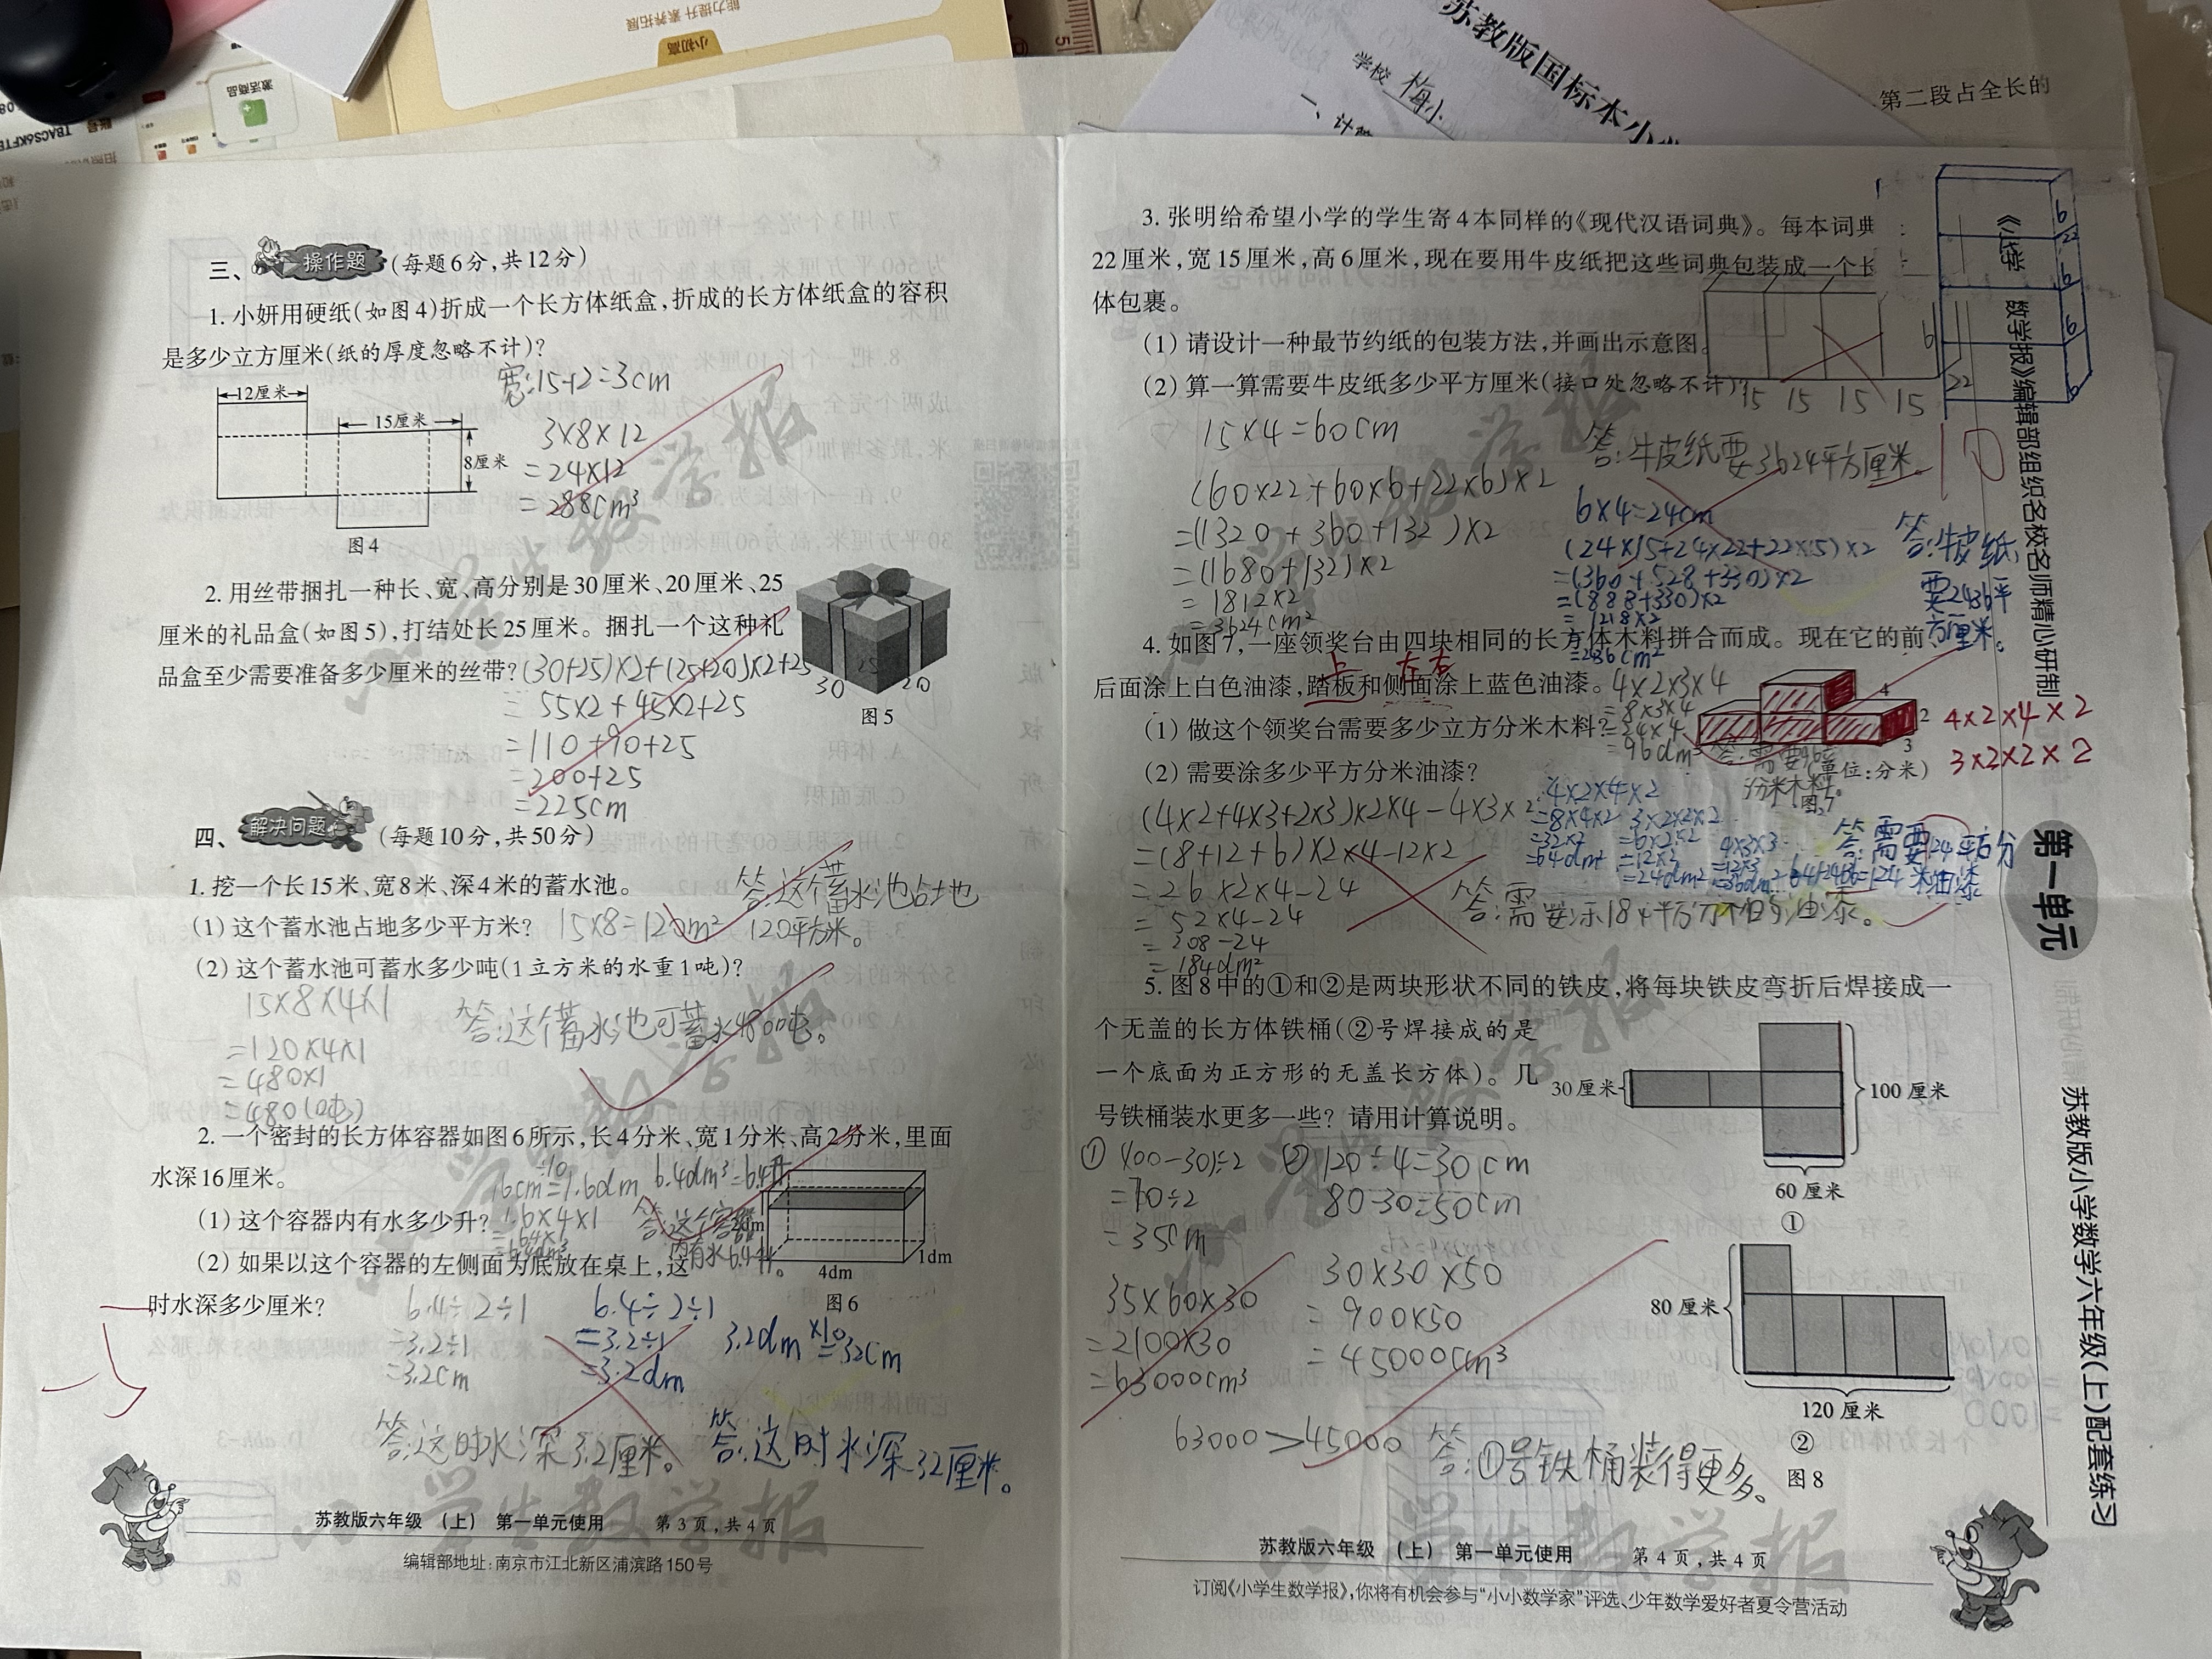 能力提升 素养拓展
小初高
激活商品
苏教版国标本小
学校 梅小
一、计
第二段占全长的
三、操作题(每题6分,共12分)
1. 小妍用硬纸(如图4)折成一个长方体纸盒,折成的长方体纸盒的容积
是多少立方厘米(纸的厚度忽略不计)?
12厘米
15厘米
8厘米
图4
宽:15-12=3cm
3×8×12
=24×12
=288cm³
2. 用丝带捆扎一种长、宽、高分别是30厘米、20厘米、25
厘米的礼品盒(如图5),打结处长25厘米。捆扎一个这种礼
品盒至少需要准备多少厘米的丝带?
(30+25)×2+(25+20)×2+25
=55×2+45×2+25
=110+90+25
=200+25
=225cm
30 25 20
图5
四、解决问题(每题10分,共50分)
1. 挖一个长15米、宽8米、深4米的蓄水池。
(1) 这个蓄水池占地多少平方米?
15×8=120m²
答:这个蓄水池占地
120平方米。
(2) 这个蓄水池可蓄水多少吨(1立方米的水重1吨)?
15×8×4×1
=120×4×1
=480×1
=480(吨)
答:这个蓄水池可蓄水480吨。
2. 一个密封的长方体容器如图6所示,长4分米、宽1分米、高2分米,里面
水深16厘米。
÷10
16cm=1.6dm 6.4dm³=6.4升
(1) 这个容器内有水多少升?
1.6×4×1
=6.4×1
=6.4dm³
答:这个容器
内有水6.4升。
2dm
4dm
1dm
图6
(2) 如果以这个容器的左侧面为底放在桌上,这
时水深多少厘米?
6.4÷2÷1
=3.2÷1
=3.2cm
答:这时水深3.2厘米。
6.4÷2÷1
=3.2÷1
=3.2dm
3.2dm ×10 =32cm
答:这时水深32厘米。
苏教版六年级 (上) 第一单元使用 第3页,共4页
编辑部地址:南京市江北新区浦滨路150号
3. 张明给希望小学的学生寄4本同样的《现代汉语词典》。每本词典
22厘米,宽15厘米,高6厘米,现在要用牛皮纸把这些词典包装成一个长
体包裹。
(1) 请设计一种最节约纸的包装方法,并画出示意图。
(2) 算一算需要牛皮纸多少平方厘米(接口处忽略不计)?
15 15 15 15
6
22
6
22
6
6
6
15×4=60cm
(60×22+60×6+22×6)×2
=(1320+360+132)×2
=(1680+132)×2
=1812×2
=3624cm²
答:牛皮纸要3624平方厘米。
10
6×4=24cm
(24×15+24×22+22×15)×2
=(360+528+330)×2
=(888+330)×2
=1218×2
=2436cm²
答:牛皮纸
要2436平
方厘米。
4. 如图7,一座领奖台由四块相同的长方体木料拼合而成。现在它的前、
后面涂上白色油漆,踏板和侧面涂上蓝色油漆。
上 左右
(1) 做这个领奖台需要多少立方分米木料?
4×2×3×4
=8×3×4
=24×4
=96dm³
答:需要96立
分米木料。
4
2
3
(单位:分米)
图7
4×2×4×2
3×2×2×2
(2) 需要涂多少平方分米油漆?
(4×2+4×3+2×3)×2×4-4×3×2
=(8+12+6)×2×4-12×2
=26×2×4-24
=52×4-24
=208-24
=184dm²
答:需要涂184平方分米的油漆。
4×2×4×2
=8×4×2
=32×2
=64dm²
3×2×2×2
=6×2×2
=12×2
=24dm²
4×3×3
=12×3
=36dm²
64+24+36=124
答:需要124平方分
米油漆
5. 图8中的①和②是两块形状不同的铁皮,将每块铁皮弯折后焊接成一
个无盖的长方体铁桶(②号焊接成的是
一个底面为正方形的无盖长方体)。几
号铁桶装水更多一些?请用计算说明。
30厘米
100厘米
60厘米
①
80厘米
120厘米
②
图8
① (100-30)÷2
=70÷2
=35cm
35×60×30
=2100×30
=63000cm³
② 120÷4=30cm
80-30=50cm
30×30×50
=900×50
=45000cm³
63000>45000
答:①号铁桶装得更多。
苏教版六年级 (上) 第一单元使用 第4页,共4页
订阅《小学生数学报》,你将有机会参与“小小数学家”评选、少年数学爱好者夏令营活动
《小学
数学报》编辑部组织名校名师精心研制
第一单元
苏教版小学数学六年级(上)配套练习
小学生数学报